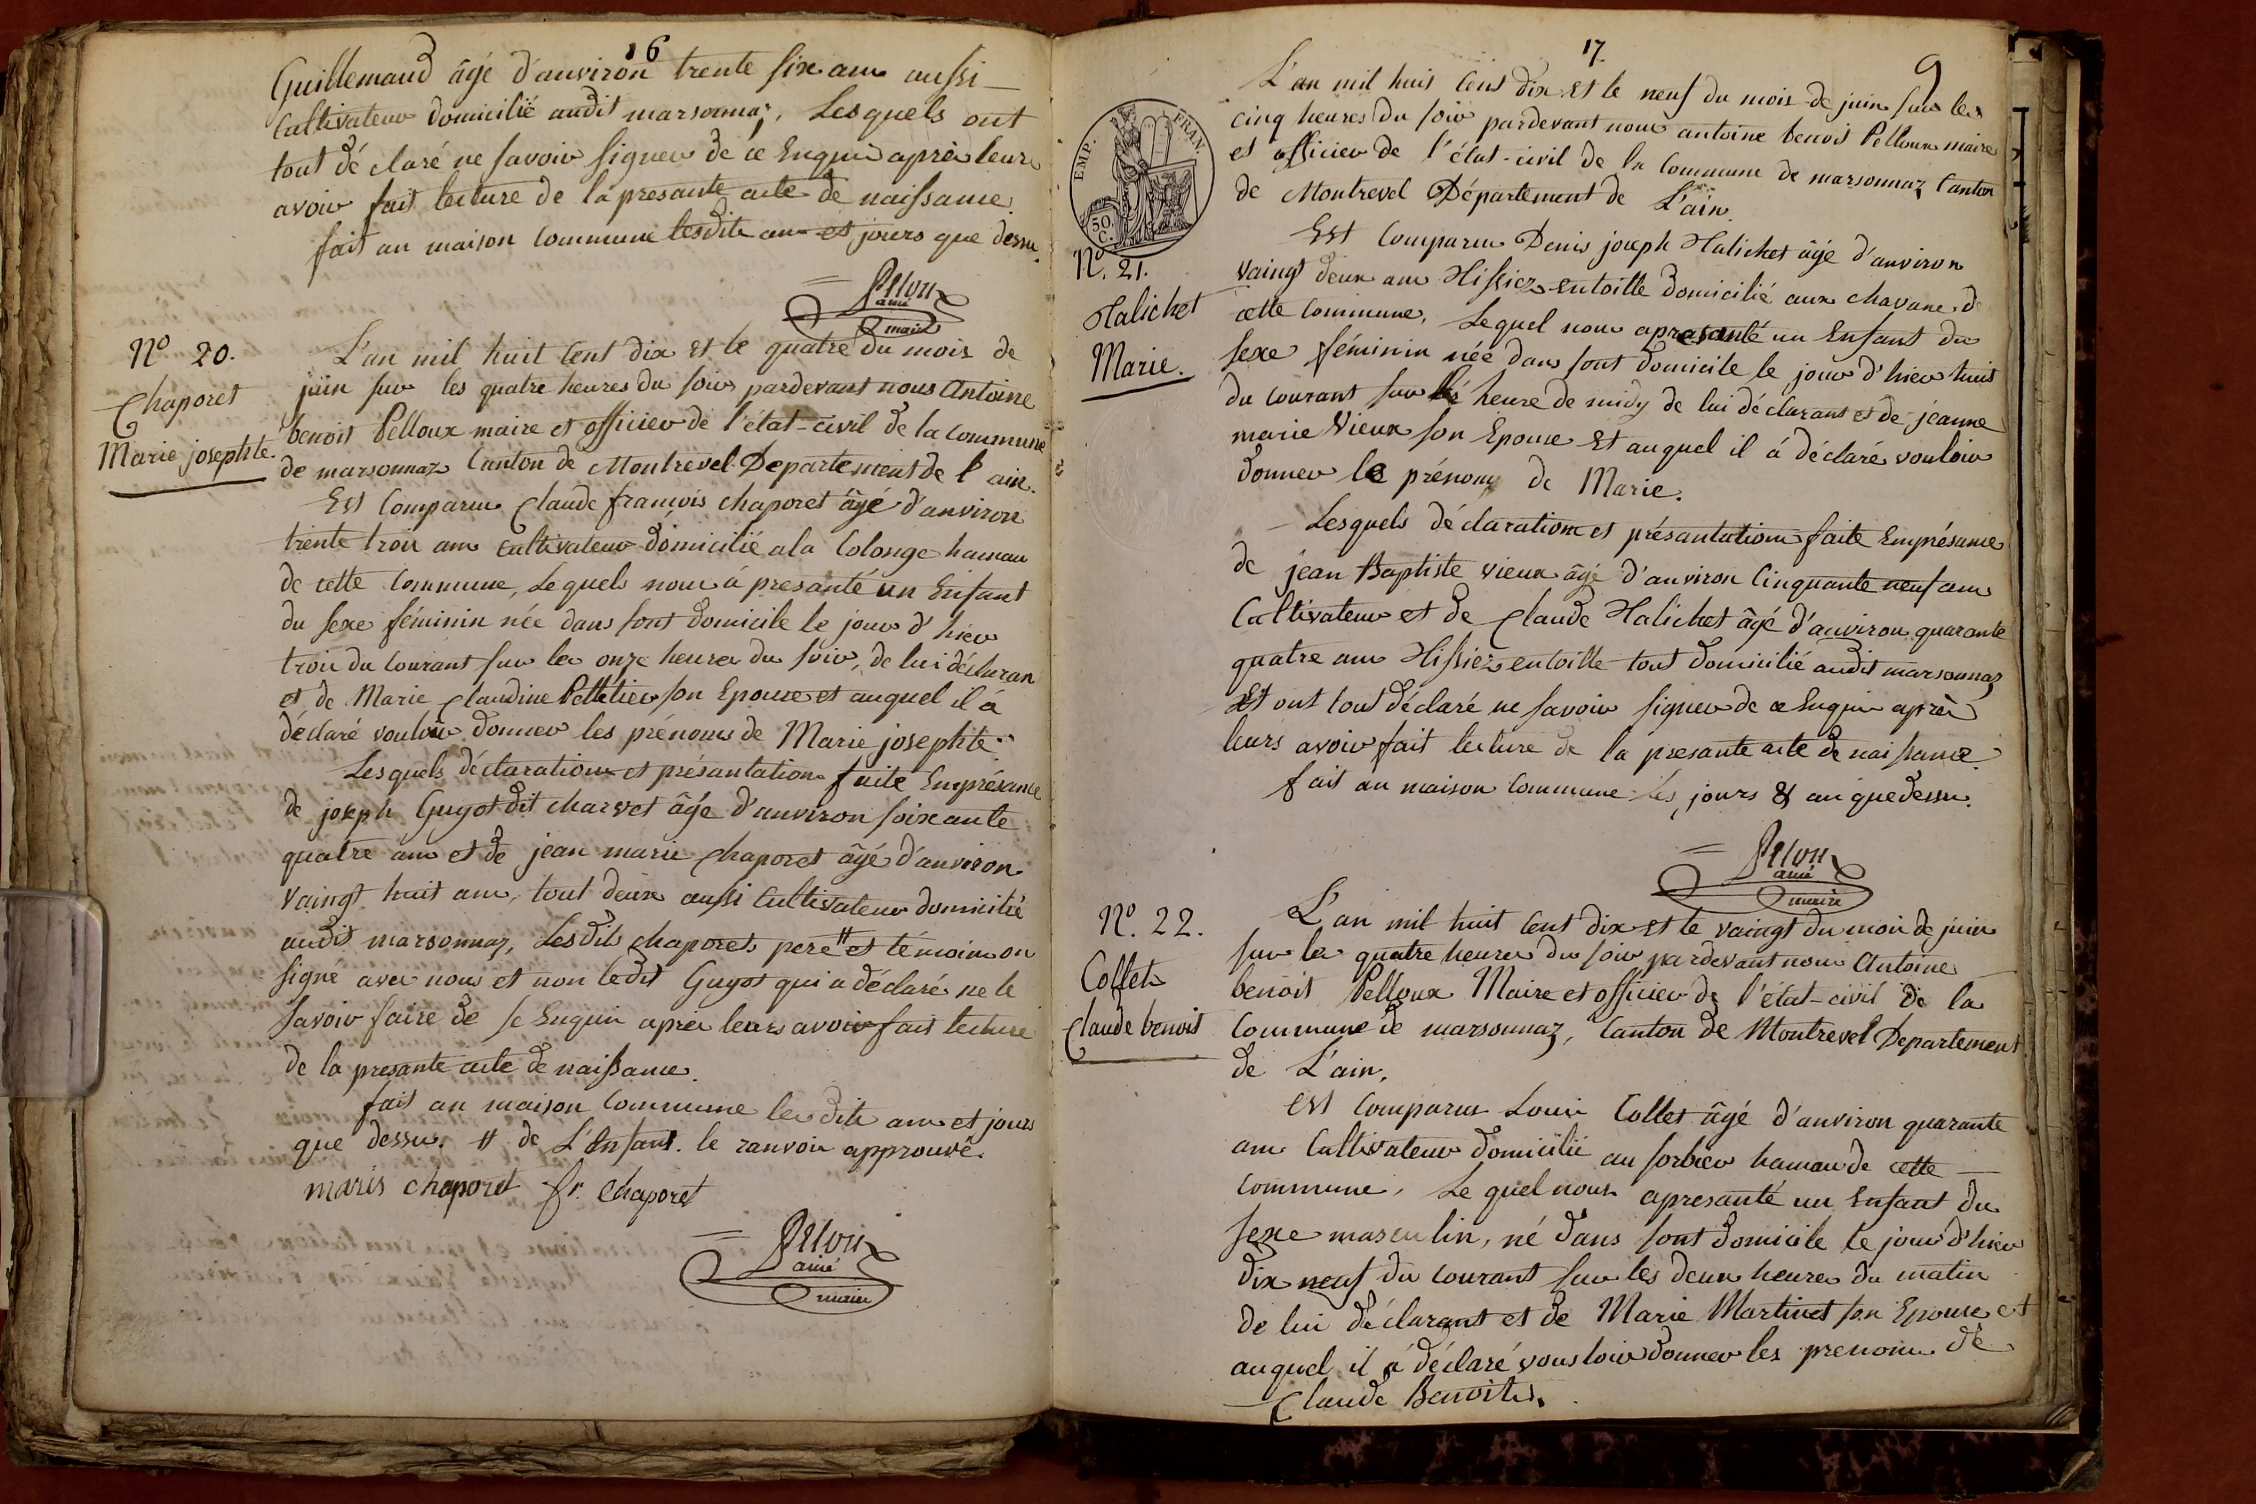 16
Guillemaud âgé d'anviron trente six ans aussi
Cultivateur domicilié audit marsonnaz, Lesquels ont
tout déclaré ne savoir signer de ce Enquis après leurs
avoir fait lecture de la presante acte de naissance.
fait au maison Commune lesdits an et jours que dessu.
Pellou
ainé
maire
N.º 20.
Chaporet
Marie josephte.
L'an mil huit Cent dix et le quatre du mois de
juin sur les quatre heures du soir pardevant nous Antoine
benoit Pelloux maire et officier de l'état-civil de la Commune
de marsonnaz Canton de Montrevel Departement de l'ain.
Est Comparu Claude françois chaporet âgé d'anviron
trente trois ans cultivateur domicilié a la Colonge hamau
de cette Commune, Lequels nous à presanté un Enfant
du sexe féminin née dans sont domicile le jour d'hier
trois du Courant sur les onze heures du soir, de lui déclaran
et de Marie Claudine Pelletier son Epouse et auquel il à
déclaré vouloir donner les prénoms de Marie josephte.
Lesquels déclaration et présantation faite Enprésance
de joseph Guyot dit charvet âgé d'anviron soixante
quatre ans et de jean marie chaporet âgé d'anviron
vaingt huit ans, tout deux aussi Cultivateur domicilié
audit marsonnaz, Lesdits chaporets pere # et témoin on
signé avec nous et non ledit Guyot qui a déclaré ne le
savoir faire de se Enquis après leurs avoir fait lecture
de la presante acte de naissance.
fait au maison Commune les dits an et jours
que dessu. # de L'Enfant. le ranvoi approuvé.
maris chaporet fr. Chaporet
Pellou
ainé
maire
17.
9
EMP. FRAN.
50.
C.
N.º 21.
Halichet
Marie.
L'an mil huit Cent dix et le neuf du mois de juin sur les
cinq heures du soir pardevant nous antoine benoit Pelloux maire
et officier de l'état-civil de la Commune de marsonnaz Canton
de Montrevel Département de L'ain.
Est Comparu Denis joseph Halichet âgé d'anviron
vaingt deux ans Tissiez entoille domicilié aux chavane de
cette Commune, Lequel nous apresanté un Enfant du
sexe féminin née dans sont domicile le jour d'hier huit
du courant sur les heure de midy de lui déclarant et de jeanne
marie Vieux son Epouse Et auquel il à déclaré vouloir
donner le prénom de Marie.
Lesquels déclaration et présantation faite Enprésance
de jean Baptiste vieux âgé d'anviron Cinquante neuf ans
Cultivateur et de Claude Halichet âgé d'anviron quarante
quatre ans Tissiez entoille tout domicilié audit marsonnaz
Et ont tout déclaré ne savoir signer de ce Enquis après
leurs avoir fait lecture de la presante acte de naissance.
fait au maison Commune les jours & an que dessu.
Pellou
ainé
maire
N.º 22.
Collet
Claude benoit
L'an mil huit Cent dix et le vaingt du moi de juin
sur les quatre heures du soir pardevant nous Antoine
benoit Pelloux Maire et officier de l'état-civil de la
Commune de marsonnaz, Canton de Montrevel Departement
de L'ain.
est Comparu Louis Collet âgé d'anviron quarante
ans Cultivateur domicilié au sorbier hamau de cette
Commune, Le quel nous apresanté un Enfant du
sexe masculin, né dans sont domicile le jour d'hier
dix neuf du Courant sur les deux heures du matin
de lui déclarant et de Marie Martinet son Epouse et
auquel il à déclaré vousloir donner les prenoms de
Claude Benoits.